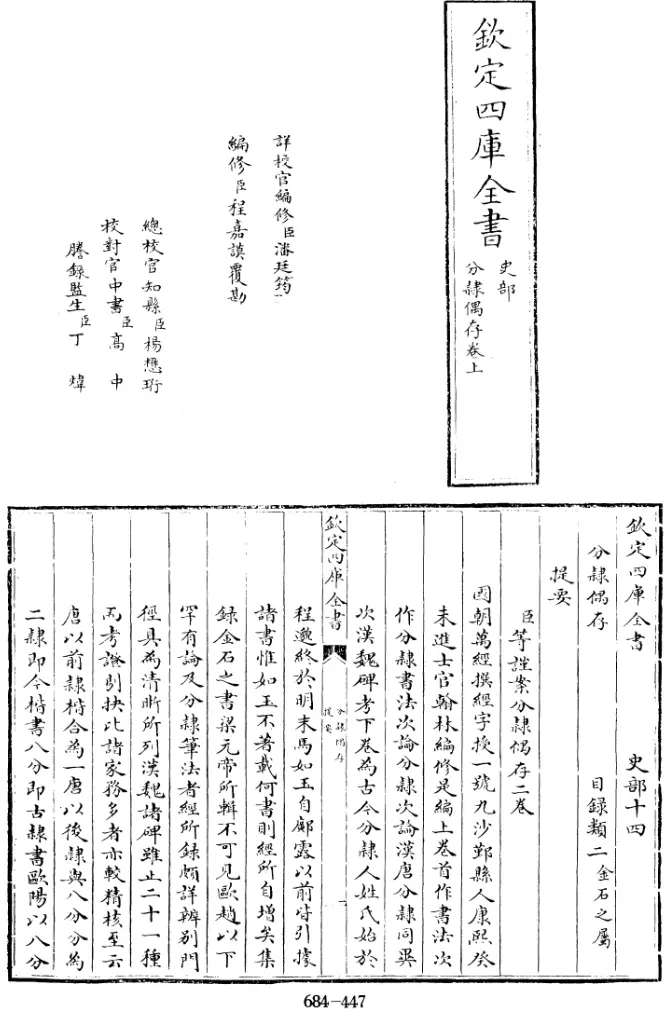 欽定四庫全書
史部
分隷偶存卷上
詳校官編修臣潘廷筠
編修臣程嘉謨覆勘
總校官知縣臣楊懋珩
校對官中書臣高中
謄録監生臣丁煒
欽定四庫全書 史部十四
分隷偶存 目録類二金石之屬
提要
臣等謹案分隷偶存二卷
國朝萬經撰經字授一號九沙鄞縣人康熙癸
未進士官翰林編修是編上卷首作書法次
作分隷書法次論分隷次論漢唐分隷同異
次漢魏碑考下卷為古今分隷人姓氏始於
欽定四庫全書
分隷偶存
提要
一
程邈終於明末馬如玉自鄺露以前皆引據
諸書惟如玉不著載何書則經所自增矣集
録金石之書梁元帝所輯不可見歐趙以下
罕有論及分隷筆法者經所録頗詳辨别門
徑具為清晰所列漢魏諸碑雖止二十一種
而考證引抉比諸家務多者亦較精核至云
唐以前隷楷合為一唐以後隷與八分分為
二隷即今楷書八分即古隷書歐陽以八分
684-447